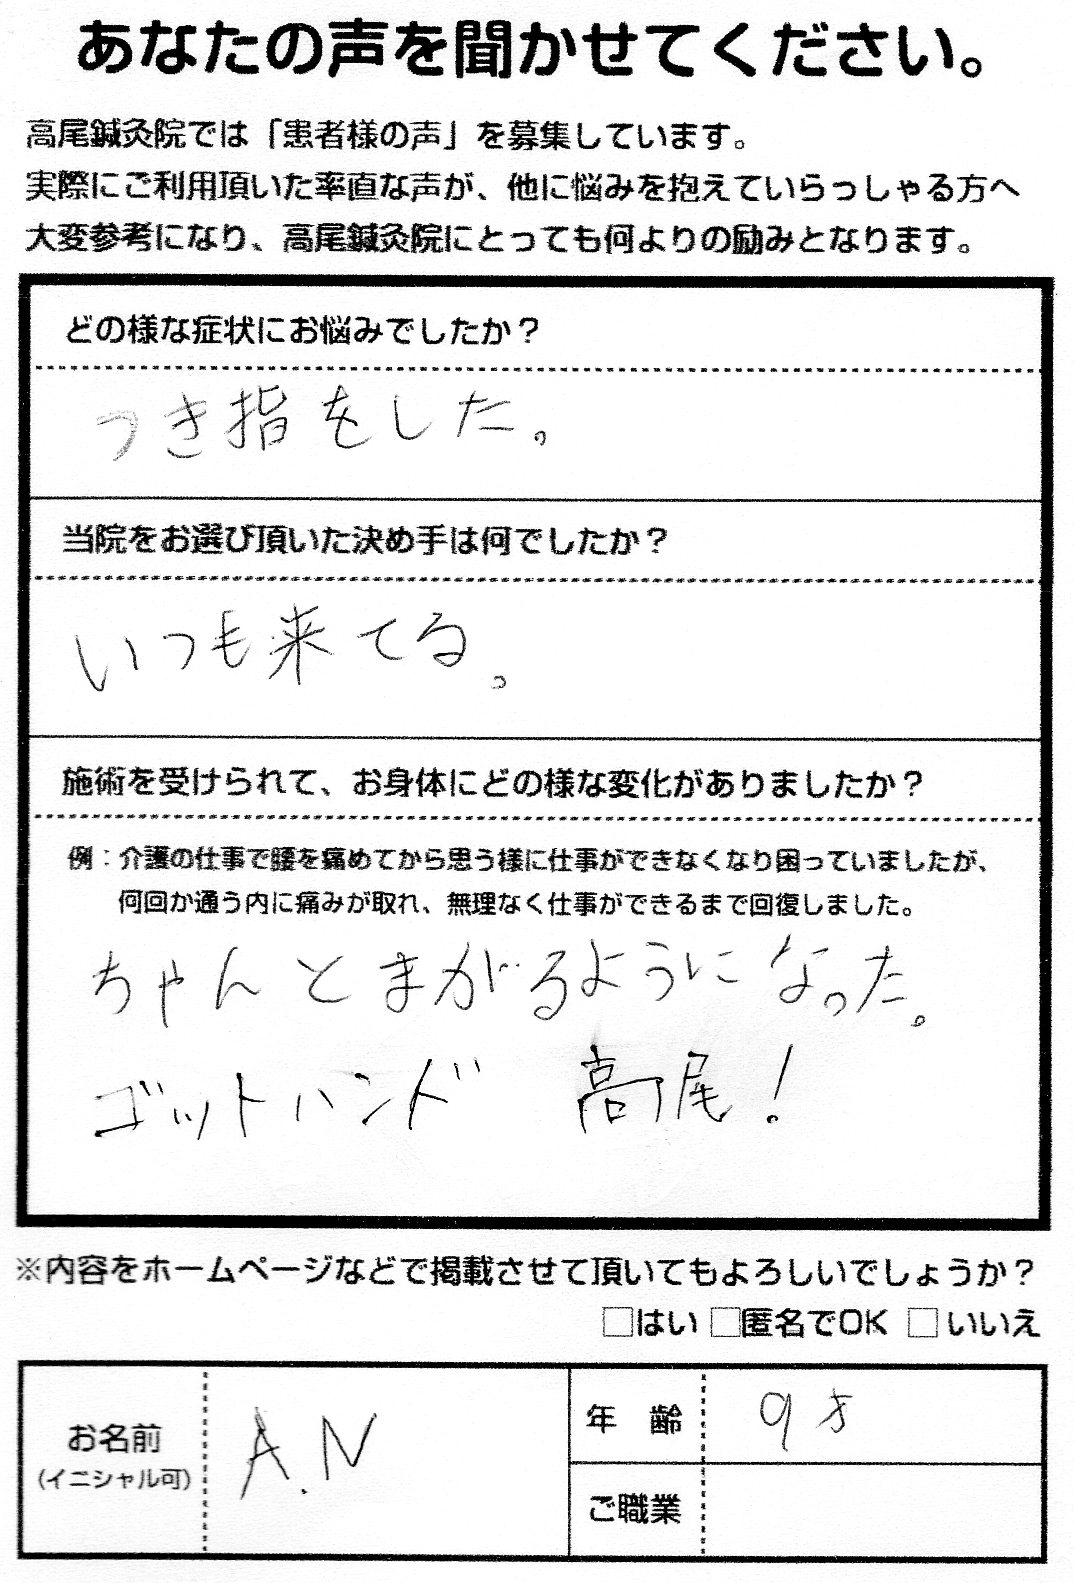 あなたの声を聞かせてください。
高尾鍼灸院では「患者様の声」を募集しています。
実際にご利用頂いた率直な声が、他に悩みを抱えていらっしゃる方へ
大変参考になり、高尾鍼灸院にとっても何よりの励みとなります。
どの様な症状にお悩みでしたか？
つき指をした。
当院をお選び頂いた決め手は何でしたか？
いつも来てる。
施術を受けられて、お身体にどの様な変化がありましたか？
例：介護の仕事で腰を痛めてから思う様に仕事ができなくなり困っていましたが、
何回か通う内に痛みが取れ、無理なく仕事ができるまで回復しました。
ちゃんとまがるようになった。
ゴットハンド 高尾！
※内容をホームページなどで掲載させて頂いてもよろしいでしょうか？
□はい □匿名でOK □いいえ
お名前
(イニシャル可)
A.N
年 齢
9才
ご職業